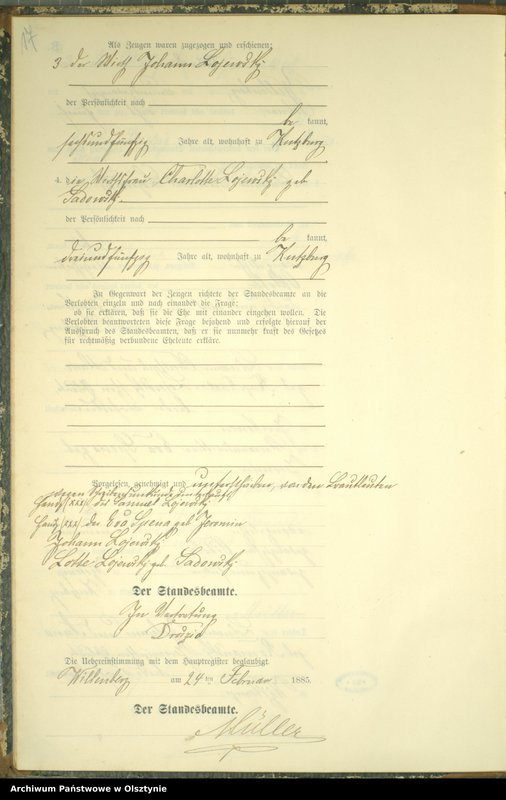 17
Als Zeugen waren zugezogen und erschienen:
3 der Wirth Johann Lojewski
der Persönlichkeit nach
be kannt,
sechsundfünfzig Jahre alt, wohnhaft zu Kutzburg
4. die Wirthsfrau Charlotte Lojewski geb
Sadowski
der Persönlichkeit nach
be kannt,
dreiundfünfzig Jahre alt, wohnhaft zu Kutzburg
In Gegenwart der Zeugen richtete der Standesbeamte an die
Verlobten einzeln und nach einander die Frage:
ob sie erklären, daß sie die Ehe mit einander eingehen wollen. Die
Verlobten beantworteten diese Frage bejahend und erfolgte hierauf der
Ausspruch des Standesbeamten, daß er sie nunmehr kraft des Gesetzes
für rechtmäßig verbundene Eheleute erkläre.
Vorgelesen, genehmigt und unterschrieben, von den Brautleuten
wegen Schreibensunkunde unterkreuzt
Handz (xxx) des Samuel Lojewski
Handz (xxx) der Eva geb Jeromin
Johann Lojewski
Lotte Lojewski geb Sadowski
Der Standesbeamte.
In Vertretung
Die Uebereinstimmung mit dem Hauptregister beglaubigt
Willenberg am 24 ten Februar 1885.
Der Standesbeamte.
Müller
Archiwum Państwowe w Olsztynie